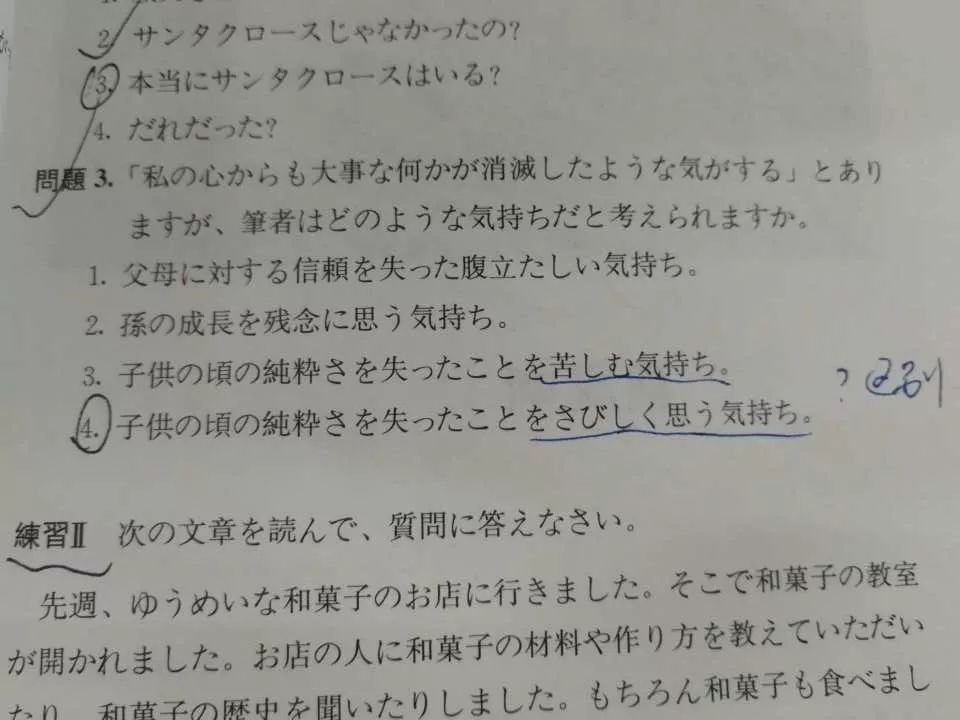 2. サンタクロースじゃなかったの?
3. 本当にサンタクロースはいる?
4. だれだった?
問題3.「私の心からも大事な何かが消滅したような気がする」とあり
ますが、筆者はどのような気持ちだと考えられますか。
1. 父母に対する信頼を失った腹立たしい気持ち。
2. 孫の成長を残念に思う気持ち。
3. 子供の頃の純粋さを失ったことを苦しむ気持ち。
? 区别
4. 子供の頃の純粋さを失ったことをさびしく思う気持ち。
練習Ⅱ 次の文章を読んで、質問に答えなさい。
先週、ゆうめいな和菓子のお店に行きました。そこで和菓子の教室
が開かれました。お店の人に和菓子の材料や作り方を教えていただい
たり、和菓子の歴史を聞いたりしました。もちろん和菓子も食べまし